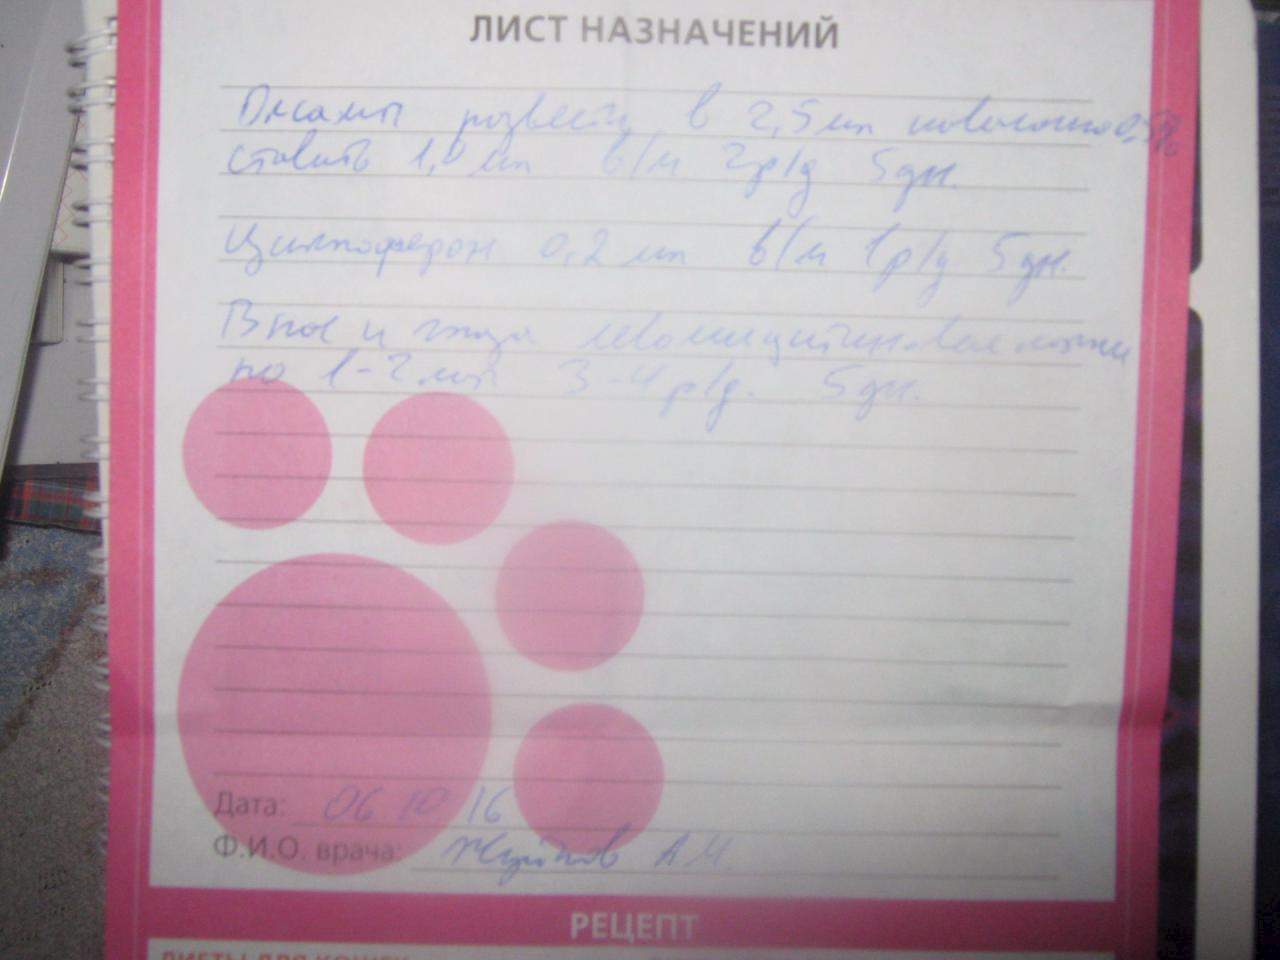 ЛИСТ НАЗНАЧЕНИЙ
развести в 2,5 мл новокаина 0,5%
ставить 1,0 мл в/м 2р/д 5дн.
Циклоферон 0,2 мл в/м 1р/д 5дн.
В нос и глаза левомицитиновые капли
по 1-2 3-4 р/д. 5дн.
Дата: 06 10 16
Ф.И.О. врача: А.М.
РЕЦЕПТ
ДИЕТЫ ДЛЯ КОШЕК